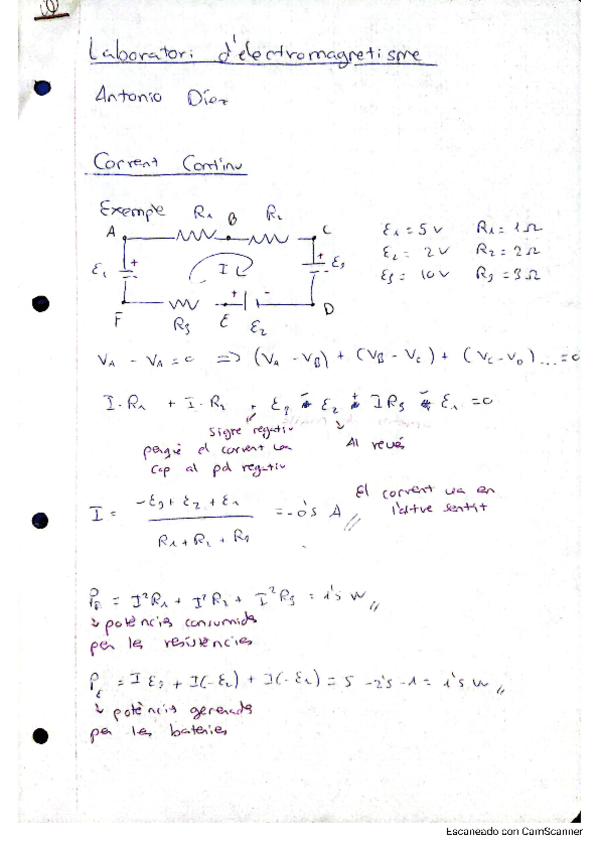 Laboratori d'electromagnetisme
Antonio Díez
Corrent Continu
Exemple
R1 B R2
A C
ε1 + I + ε3
F R3 E ε2 D
+ -
ε1 = 5 V R1 = 1 Ω
ε2 = 2 V R2 = 2 Ω
ε3 = 10 V R3 = 3 Ω
VA - VA = 0 => (VA - VB) + (VB - VC) + (VC - VD) ... = 0
I·R1 + I·R2 + ε3 - ε2 + IR3 - ε1 = 0
signe negatiu
perquè el corrent va
cap al pol negatiu
Al revés
I = -ε3 + ε2 + ε1 / R1 + R2 + R3 = -0's A
El corrent va en
l'altre sentit
PR = I²R1 + I²R2 + I²R3 = 1's W
potència consumida
per les resistències
Pε = I ε3 + I(-ε2) + I(-ε1) = 5 - 2's - 1 = 1's W
potència generada
per les bateries
Escaneado con CamScanner